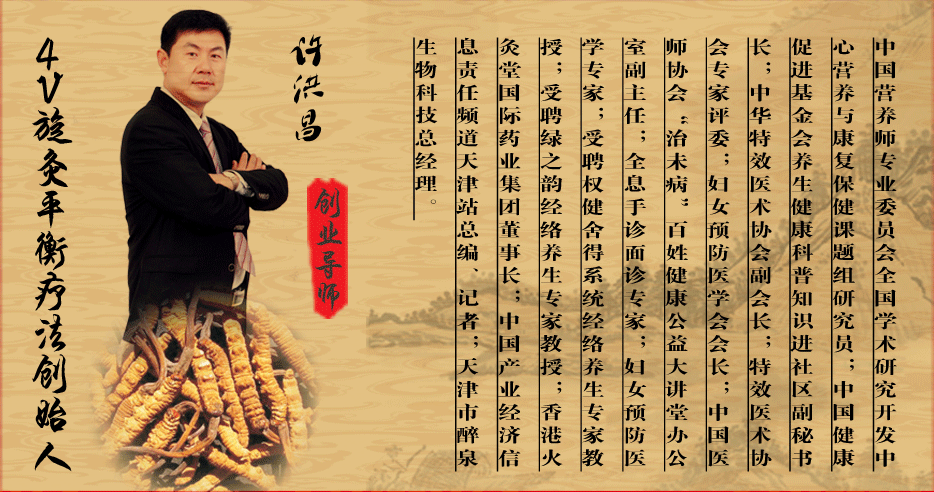 中国营养师专业委员会全国学术研究开发中
心营养与康复保健课题组研究员；中国健康
促进基金会养生健康科普知识进社区副秘书
长；中华特效医术协会副会长；特效医术协
会专家评委；妇女预防医学会会长；中国医
师协会“治未病”百姓健康公益大讲堂办公
室副主任；全息手诊面诊专家；妇女预防医
学专家；受聘权健舍得系统经络养生专家教
授；受聘绿之韵经络养生专家教授；香港火
灸堂国际药业集团董事长；中国产业经济信
息责任频道天津站总编、记者；天津市醉泉
生物科技总经理。
许洪昌
创业导师
4V旋灸平衡疗法创始人